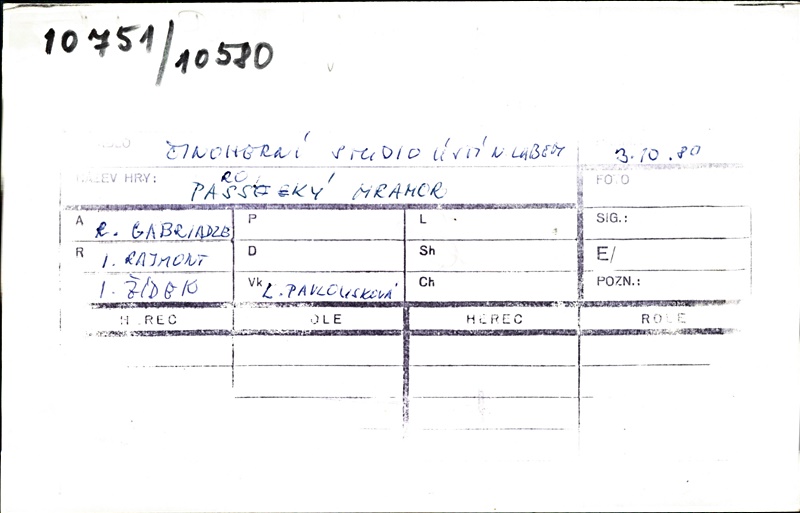 10751/10580
ČINOHERNÍ STUDIO ÚSTÍ N LABEM 3.10.80
NÁZEV HRY: FOTO
MRAMOR
A R. GABRIADZE P L SIG.:
R I. RAJMONT D Sh E/
I. ŽÍDEK Vk L. PAVLOUSKOVÁ Ch POZN.:
HEREC ROLE HEREC ROLE